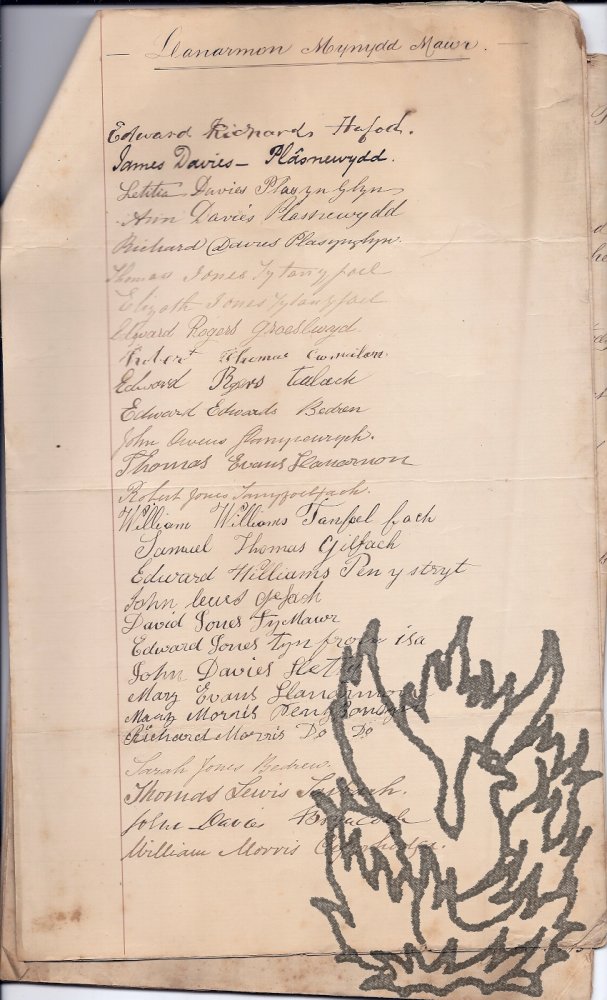 Llanarmon Mynydd Mawr.
Edward Richards Hafod.
James Davies - Plâsnewydd.
Letitia Davies Plasynglyn
Ann Davies Plasnewydd
Richard Davies Plasynglyn.
Thomas Jones Tytanyfoel
Elizath Jones Tytanyfoel
Edward Rogers Groeslwyd
Robert Thomas
Edward Rogers
Edward Edwards Bedren
John Owens
Thomas Evans Llanarmon
Robert Jones
William Williams Tanfoel fach
Samuel Thomas Gilfach
Edward Williams Pen y stryt
John lewis
David Jones Ty Mawr
Edward Jones Tyn isa
John Davies
Mary Evans Llanarmon
Mary Morris
Richard Morris Do Do
Sarah Jones Bedrew.
Thomas Lewis
John Davies
William Morris